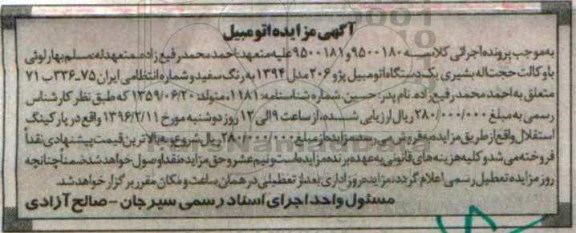 آگهی مزایده اتومبیل
به موجب پرونده اجرائی کلاسه ۹۵۰۰۱۸۰ و ۹۵۰۰۱۸۱ علیه متعهد: احمد محمدرفیع زاده، متعهدله: مسلم بهارلوئی
با وکالت حجت اله بشیری یک دستگاه اتومبیل پژو ۲۰۶ مدل ۱۳۹۴ به رنگ سفید و شماره انتظامی ایران ۷۵-۳۳۶ب۷۱
متعلق به احمد محمدرفیع زاده، نام پدر: حسین، شماره شناسنامه: ۱۱۸۱، متولد: ۱۳۵۹/۰۶/۲۰ که طبق نظر کارشناس
رسمی به مبلغ ۲۸۰/۰۰۰/۰۰۰ ریال ارزیابی شده، از ساعت ۹ الی ۱۲ روز دوشنبه مورخ ۱۳۹۶/۲/۱۱ واقع در پارکینگ
استقلال واقع از طریق مزایده به فروش می رسد. مزایده از مبلغ ۲۸۰/۰۰۰/۰۰۰ ریال شروع و به بالاترین قیمت پیشنهادی نقداً
فروخته می شد و کلیه هزینه های قانونی به عهده برنده مزایده است و نیم عشر و حق مزایده نقداً وصول خواهد شد ضمناً چنانچه
روز مزایده تعطیل رسمی اعلام گردد، مزایده روز اداری بعد از تعطیلی در همان ساعت و مکان مقرر برگزار خواهد شد.
مسئول واحد اجرای اسناد رسمی سیرجان - صالح آزادی